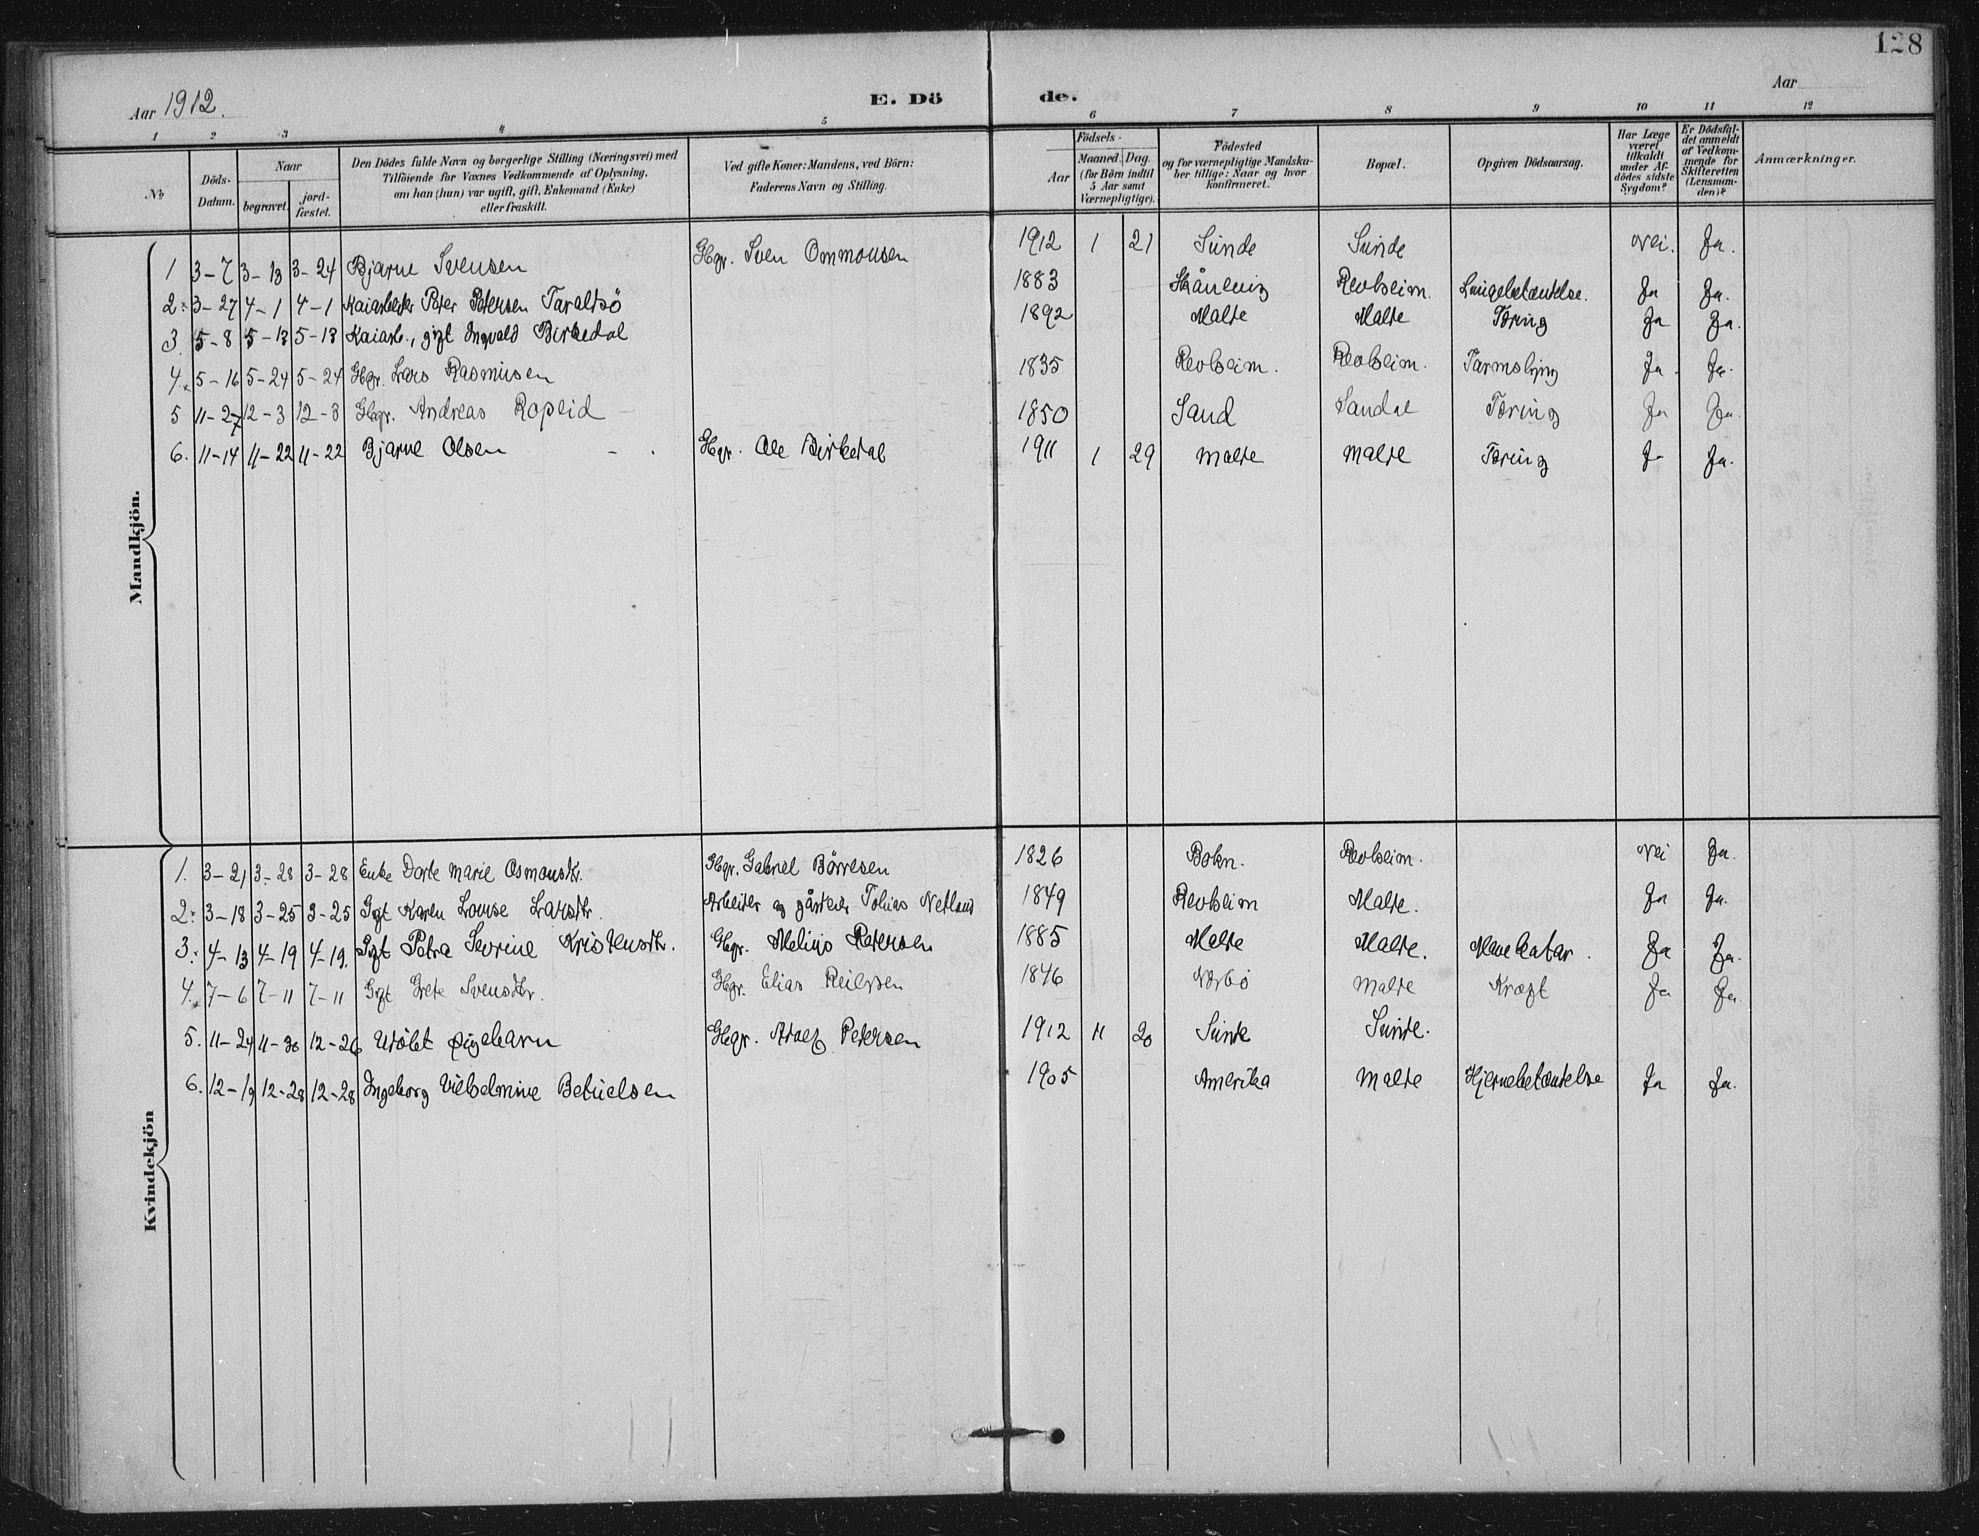 128
Aar 1912.
E. Dö de.
Aar
1 2 3 4 5 6 7 8 9 10 11 12
No
Döds-Datum.
Naar
begravet.
jord-fæstet.
Den Dödes fulde Navn og borgerlige Stilling (Næringsvei) med
Tilföiende for Voxnes Vedkommende af Oplysning,
om han (hun) var ugift, gift, Enkemand (Enke)
eller fraskilt.
Ved gifte Koner: Mandens, ved Börn:
Faderens Navn og Stilling.
Födsels-
Aar
Maaned. Dag.
(for Börn indtil
5 Aar samt
Værnepligtige).
Födested
og for værnepligtige Mandska-
ber tillige: Naar og hvor
konfirmeret.
Bopæl.
Opgiven Dödsaarsag.
Har Læge
været
tilkaldt
under Af-
dödes sidste
Sygdom?
Er Dödsfal-
det anmeldt
af Vedkom-
mende for
Skifteretten
(Lensman-
den)?
Anmærkninger.
Mandkjön.
1 3-7 3-13 3-24 Bjarne Svensen Gbgr. Sven Ommonsen 1912 1 21 Sunde Sunde Nei. Ja.
2. 3-27 4-1 4-1 Kaiarbeider Peter Petersen Taraltsö 1883 Skånevig Revheim. Lungebetændelse. Ja Ja.
3. 5-8 5-13 5-13 Kaiarb., gift Ingvald Birkedal 1892 Malde Malde Tæring Ja Ja.
4. 5-16 5-24 5-24 Gbgr. Lars Rasmussen 1835 Revheim. Revheim. Tarmslyng Ja Ja.
5 11-27 12-3 12-3 Gbgr. Andreas Ropeid 1850 Sand Sandal Tæring Ja Ja.
6. 11-14 11-22 11-22 Bjarne Olsen Gbgr. Ole Birkedal 1911 1 29 Malde Malde Tæring Ja Ja.
Kvindekjön
1. 3-21 3-28 3-28 Enke Dorte Marie Osmondsdtr. Gbgr. Gabriel Börresen 1826 Bokn. Revheim. Nei Ja.
2. 3-18 3-25 3-25 Gift Karen Lovise Larsdtr. Arbeider og gårdeier Tobias Netland 1849 Revheim Malde. Ja Ja.
3. 4-13 4-19 4-19. Gift Petra Severine Kristensdtr. Gbgr. Melius Petersen 1885 Malde Malde. Mavekatar. Ja Ja.
4. 7-6 7-11 7-11 Gift Grete Svensdtr. Gbgr. Elias Reiersen 1846 Nærbö Malde Kræft Ja Ja.
5. 11-24 11-30 12-26 Udöbt pigebarn Gbgr. Adolf Petersen 1912 11 20 Sunde Sunde.
6. 12-19 12-28 12-28 Ingeborg Vilhelmine Betuelsen 1905 Amerika Malde Hjernebetændelse Ja Ja.